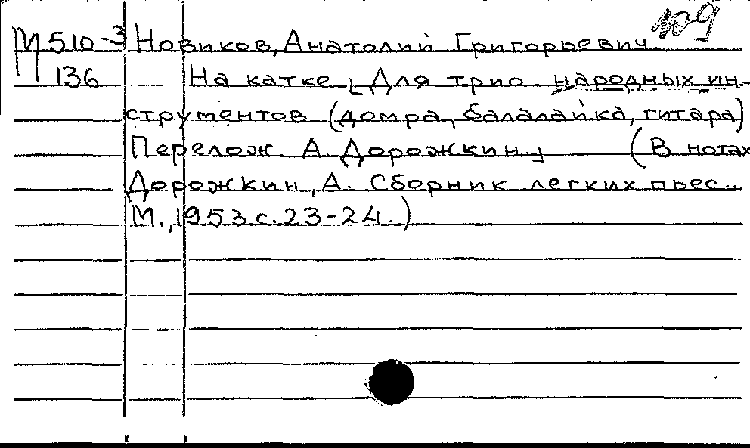 109
М 510-3 Новиков, Анатолий Григорьевич.
136 На катке [Для трио народных ин-
струментов (домра, балалайка, гитара)
Перелож. А. Дорожкин] (В нотах
Дорожкин, А. Сборник легких пьес.
М., 1953. с. 23-24.)